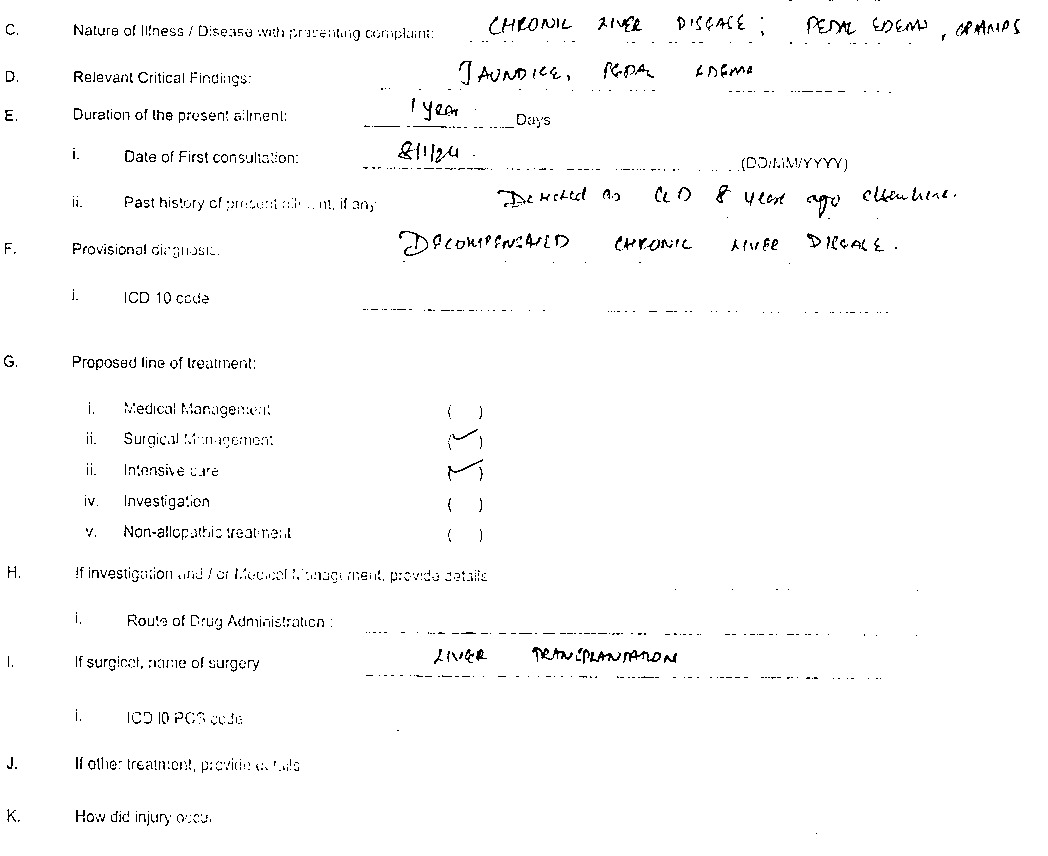 C. Nature of Illness / Disease with presenting complaint: CHRONIC LIVER DISEASE; PEDAL EDEMA, CRAMPS
D. Relevant Critical Findings: JAUNDICE, PEDAL EDEMA
E. Duration of the present ailment: 1 year Days
i. Date of First consultation: 8/1/24 (DD/MM/YYYY)
ii. Past history of present ailment, if any Detected as CLD 8 year ago elsewhere.
F. Provisional diagnosis: DECOMPENSATED CHRONIC LIVER DISEASE.
i. ICD 10 code
G. Proposed line of treatment:
i. Medical Management ( )
ii. Surgical Management (✓)
ii. Intensive care (✓)
iv. Investigation ( )
v. Non-allopathic treatment ( )
H. If investigation and / or Medical Management, provide details
i. Route of Drug Administration :
I. If surgical, name of surgery LIVER TRANSPLANTATION
i. ICD I0 PCS code
J. If other treatment, provide details
K. How did injury occur